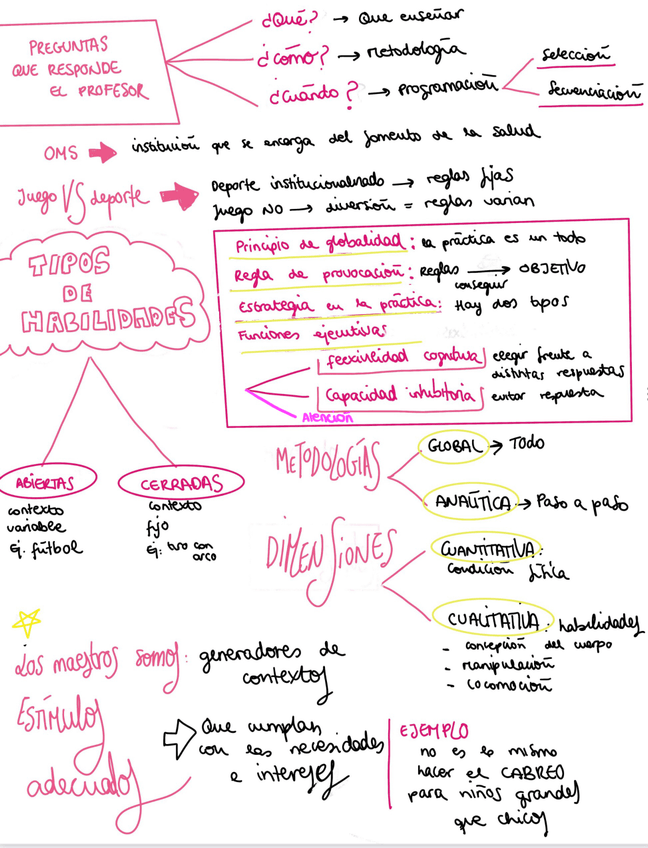 PREGUNTAS
QUE RESPONDE
EL PROFESOR
¿Qué? → Que enseñar
¿cómo? → Metodología
¿Cuándo? → programación
selección
Secuenciación
OMS → institución que se encarga del fomento de la salud
Juego VS deporte → Deporte institucionalizado → reglas fijas
Juego NO → diversión = reglas varian
TIPOS
DE
HABILIDADES
ABIERTAS
contexto
variable
Ej. fútbol
CERRADAS
contexto
fijo
Ej: tiro con
arco
Principio de globalidad: la práctica es un todo
Regla de provocación: Reglas → OBJETIVO
conseguir
Estrategia en la práctica: Hay dos tipos
Funciones ejecutivas
flexividad cognitiva elegir frente a
distintas respuestas
Capacidad inhibitoria evitar respuesta
Atención
METODOLOGÍAS
GLOBAL → Todo
ANALÍTICA → Paso a paso
DIMENSIONES
CUANTITATIVA:
condición física
CUALITATIVA: habilidades
- concepción del cuerpo
- manipulación
- locomoción
Los maestros somos: generadores de
contextos
Estímulos
adecuados
Que cumplan
con las necesidades
e intereses
EJEMPLO
no es lo mismo
hacer el CABREO
para niños grandes
que chicos